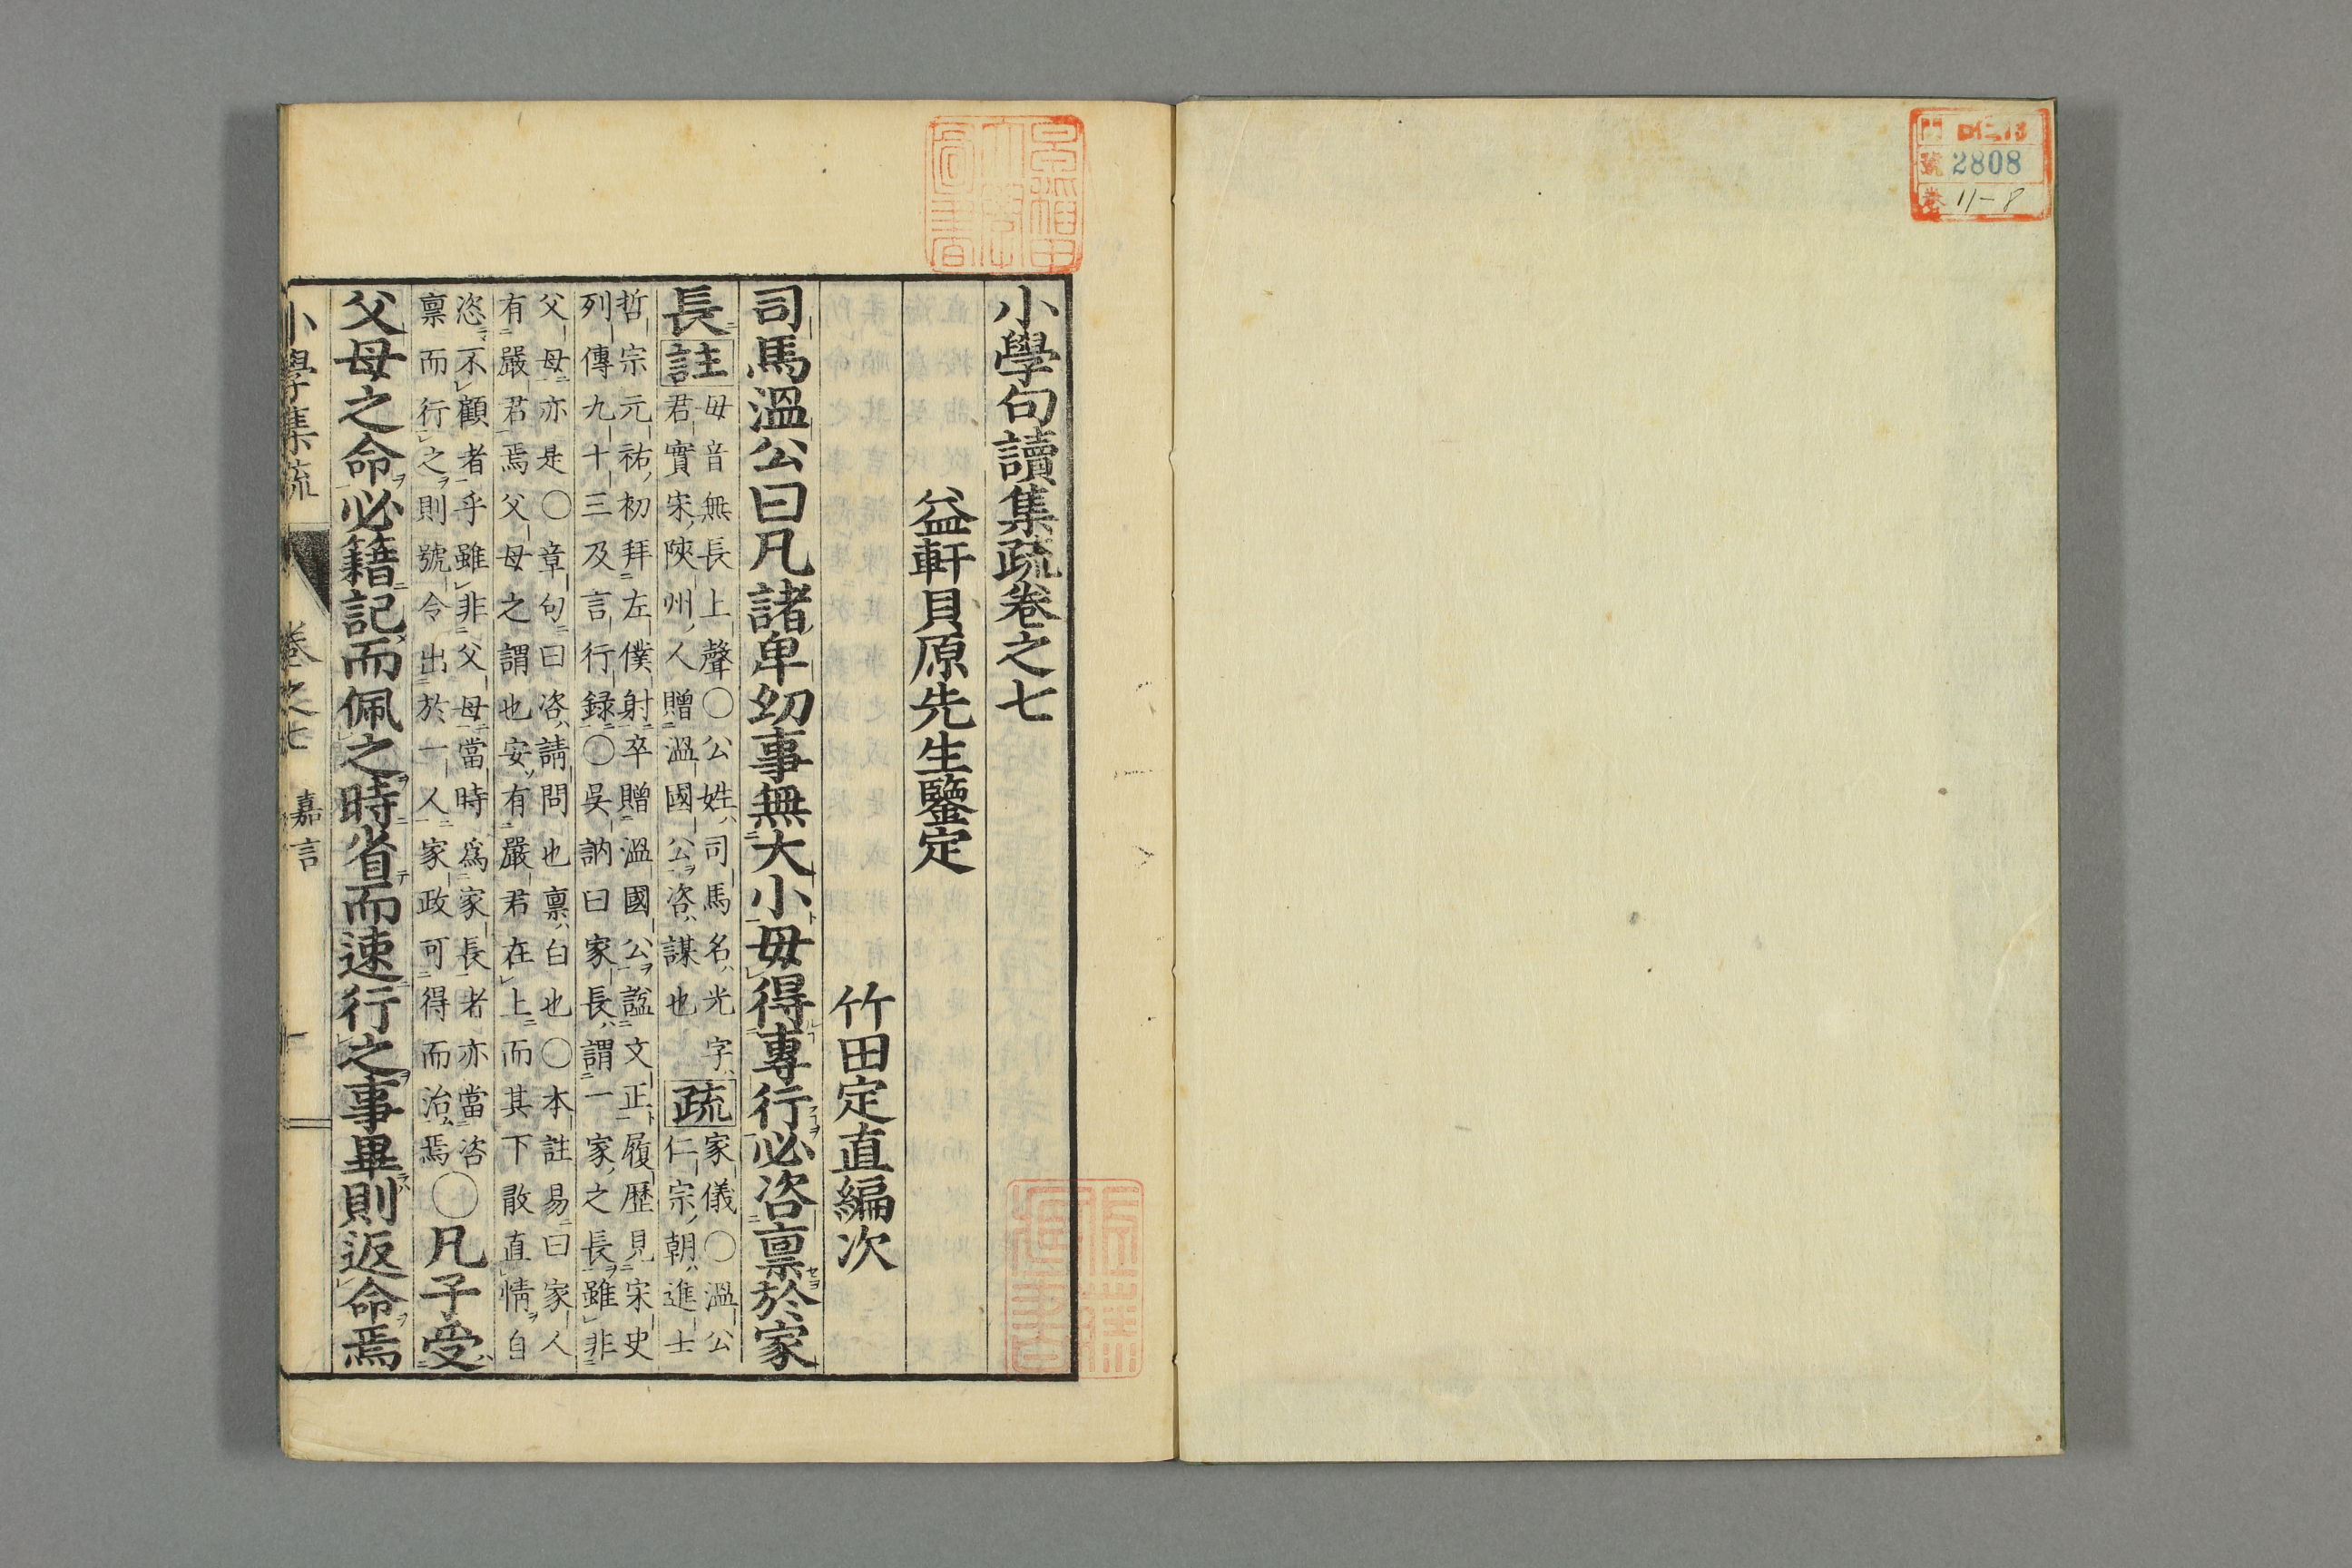 號 2808
巻 11-8
小學句讀集疏卷之七
益軒貝原先生鑒定
竹田定直編次
司馬溫公曰凡諸卑幼事無大小毋得專行必咨禀於家
長註毋音無長上聲〇公姓司馬名光字
君實宋陝州人贈溫國公咨謀也
疏家儀〇溫公
仁宗朝進士
哲宗元祐初拜左僕射卒贈溫國公謚文正履歷見宋史
列傳九十三及言行録〇吳訥曰家長謂一家之長雖非
父母亦是〇章句曰咨請問也禀白也〇本註易曰家人
有嚴君焉父母之謂也安有嚴君在上而其下敢直情自
恣不顧者乎雖非父母當時爲家長者亦當咨
禀而行之則號令出於一人家政可得而治焉
〇凡子受
父母之命必籍記而佩之時省而速行之事畢則返命焉
小學集疏 卷之七 嘉言